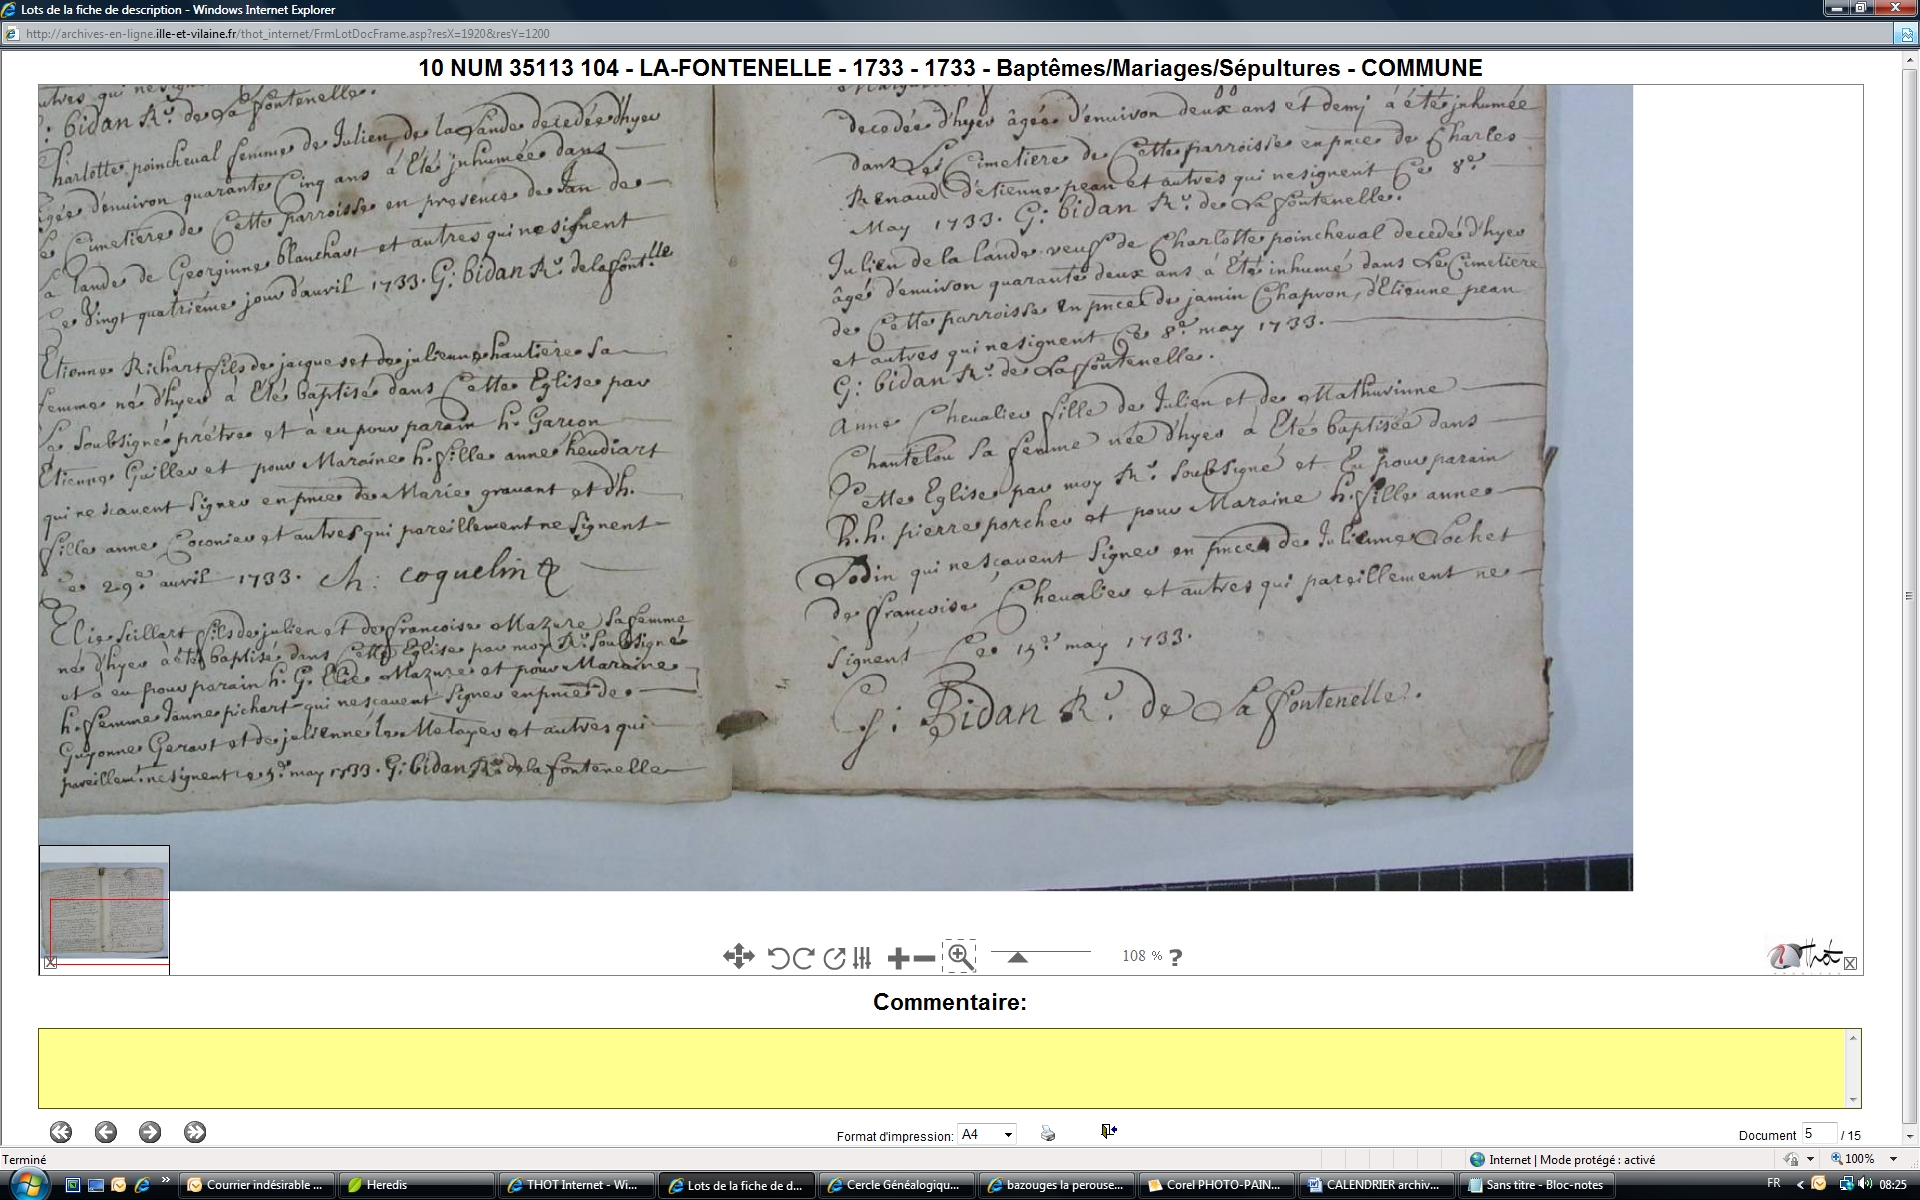 Lots de la fiche de description - Windows Internet Explorer
http://archives-en-ligne.ille-et-vilaine.fr/thot_internet/FrmLotDocFrame.asp?resX=1920&resY=1200
10 NUM 35113 104 - LA-FONTENELLE - 1733 - 1733 - Baptêmes/Mariages/Sépultures - COMMUNE
autres qui
: bidan Rr. de La fontenelle.
Charlotte poincheval femme de Julien de la Lande decedée d'hyer
âgée d'enuiron quarante Cinq ans à Eté jnhumée dans
Le Cimetiere de Cette parroisse en presence de Jan de
la lande de Georginne blanchart et autres qui ne signent
Ce Vingt quatriéme jour d'auril 1733. G: bidan Rr. de la font.lle
Etienne Richart fils de jacques et de julienne hautiere sa
femme né d'hyer à Eté baptisé dans Cette Eglise par
Le soubsigné prétre et à eu pour parain h. Garcon
Etienne Guiller et pour Maraine h. fille anne heudiart
qui ne scavent signer en pnce de Marie gravant et d'h.
fille anne Coconier et autres qui pareillement ne signent
Ce 29e auril 1733. Ch: coquelin
Elie feillart fils de julien et de francoise Mazure sa femme
né d'hyer à eté baptisé dans Cette Eglise par moy Rr. soubsigné
et à eu pour parain h. G. Elie Mazure et pour Maraine
h. femme Janne pichart qui ne scavent signer en pnce de
Guyonne Gerart et de julienne le Metayer et autres qui
pareillemt. ne signent ce 5e may 1733. G: bidan Rr. de la fontenelle
decedée d'hyer âgée d'enuiron deux ans et demj à été jnhumée
dans Le Cimetiere de Cette parroisse en pnce de Charles
Renaud d'etienne pean et autres qui ne signent Ce 8e
May 1733. G: bidan Rr. de La fontenelle.
Julien de la lande veuf de Charlotte poincheval decedé d'hyer
âgé d'enuiron quarante deux ans à Eté inhumé dans Le Cimetiere
de Cette parroisse En pnce de jamin Chapron, d'Etienne pean
et autres qui ne signent Ce 8e may 1733.
G: bidan Rr. de La fontenelle.
Anne Chevalier fille de Julien et de Mathurinne
Chantelou sa femme née d'hyer à Eté baptisée dans
Cette Eglise par moy Rr. soubsigné et Eu pour parain
h. pierre porcher et pour Maraine h. fille anne
Lodin qui ne scavent signer en pnce de Julienne Lochet
de francoise Chevalier et autres qui pareillement ne
signent Ce 15e may 1733.
G: Bidan Rr. de La fontenelle.
108 % ?
Thot
Commentaire:
Format d'impression: A4
Document 5 / 15
Terminé
Internet | Mode protégé : activé
100%
Courrier indésirable ...
Heredis
THOT Internet - Wi...
Lots de la fiche de d...
Cercle Généalogiqu...
bazouges la perouse...
Corel PHOTO-PAIN...
CALENDRIER archiv...
Sans titre - Bloc-notes
FR
08:25